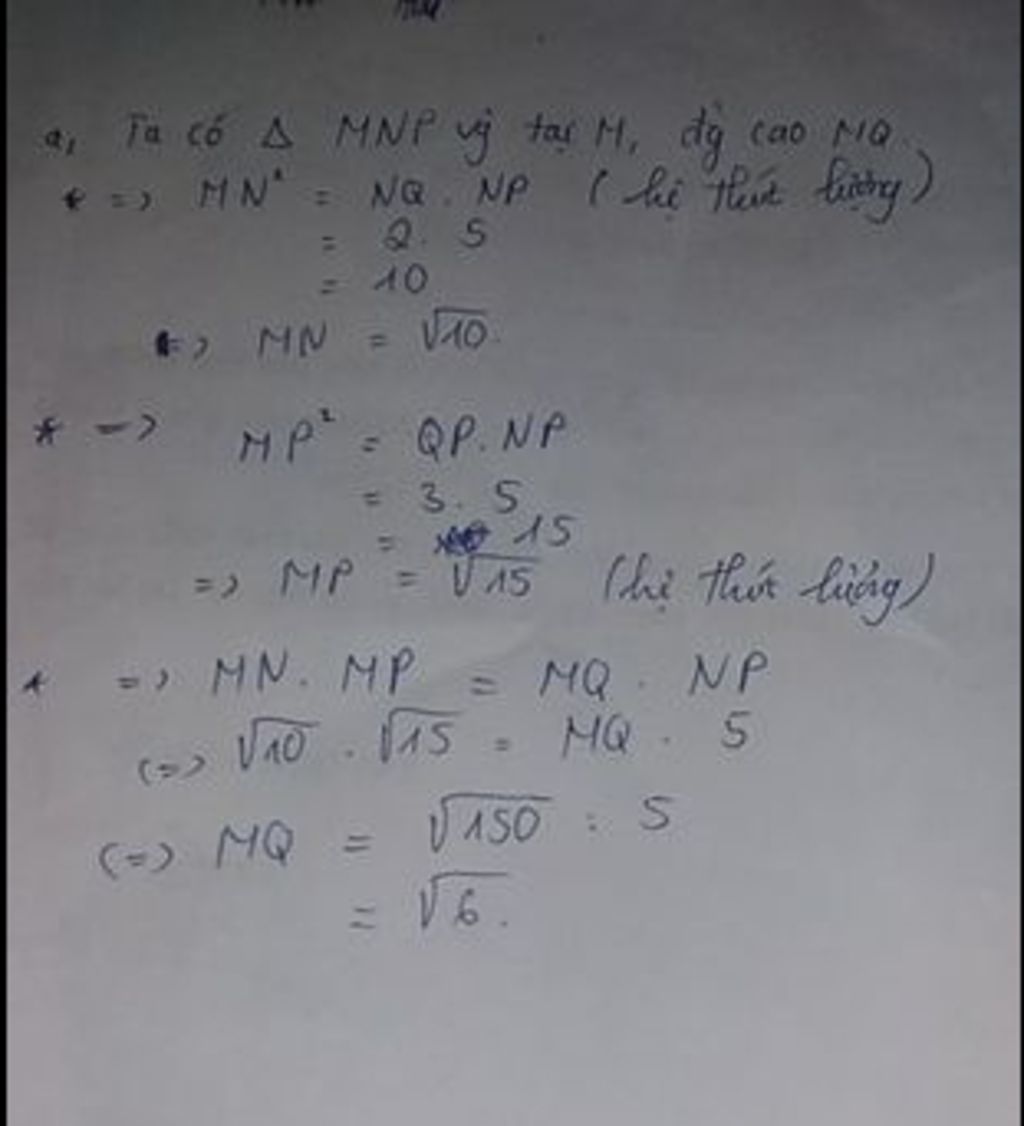 a, Ta có Δ MNP vg tại M, đg cao MQ.
* => MN² = NQ . NP (hệ thức lượng)
= 2. 5
= 10
=> MN = √10.
* => MP² = QP. NP
= 3. 5
= 15
=> MP = √15 (hệ thức lượng)
* => MN. MP = MQ . NP
(=> √10 . √15 = MQ . 5
(=> MQ = √150 : 5
= √6.